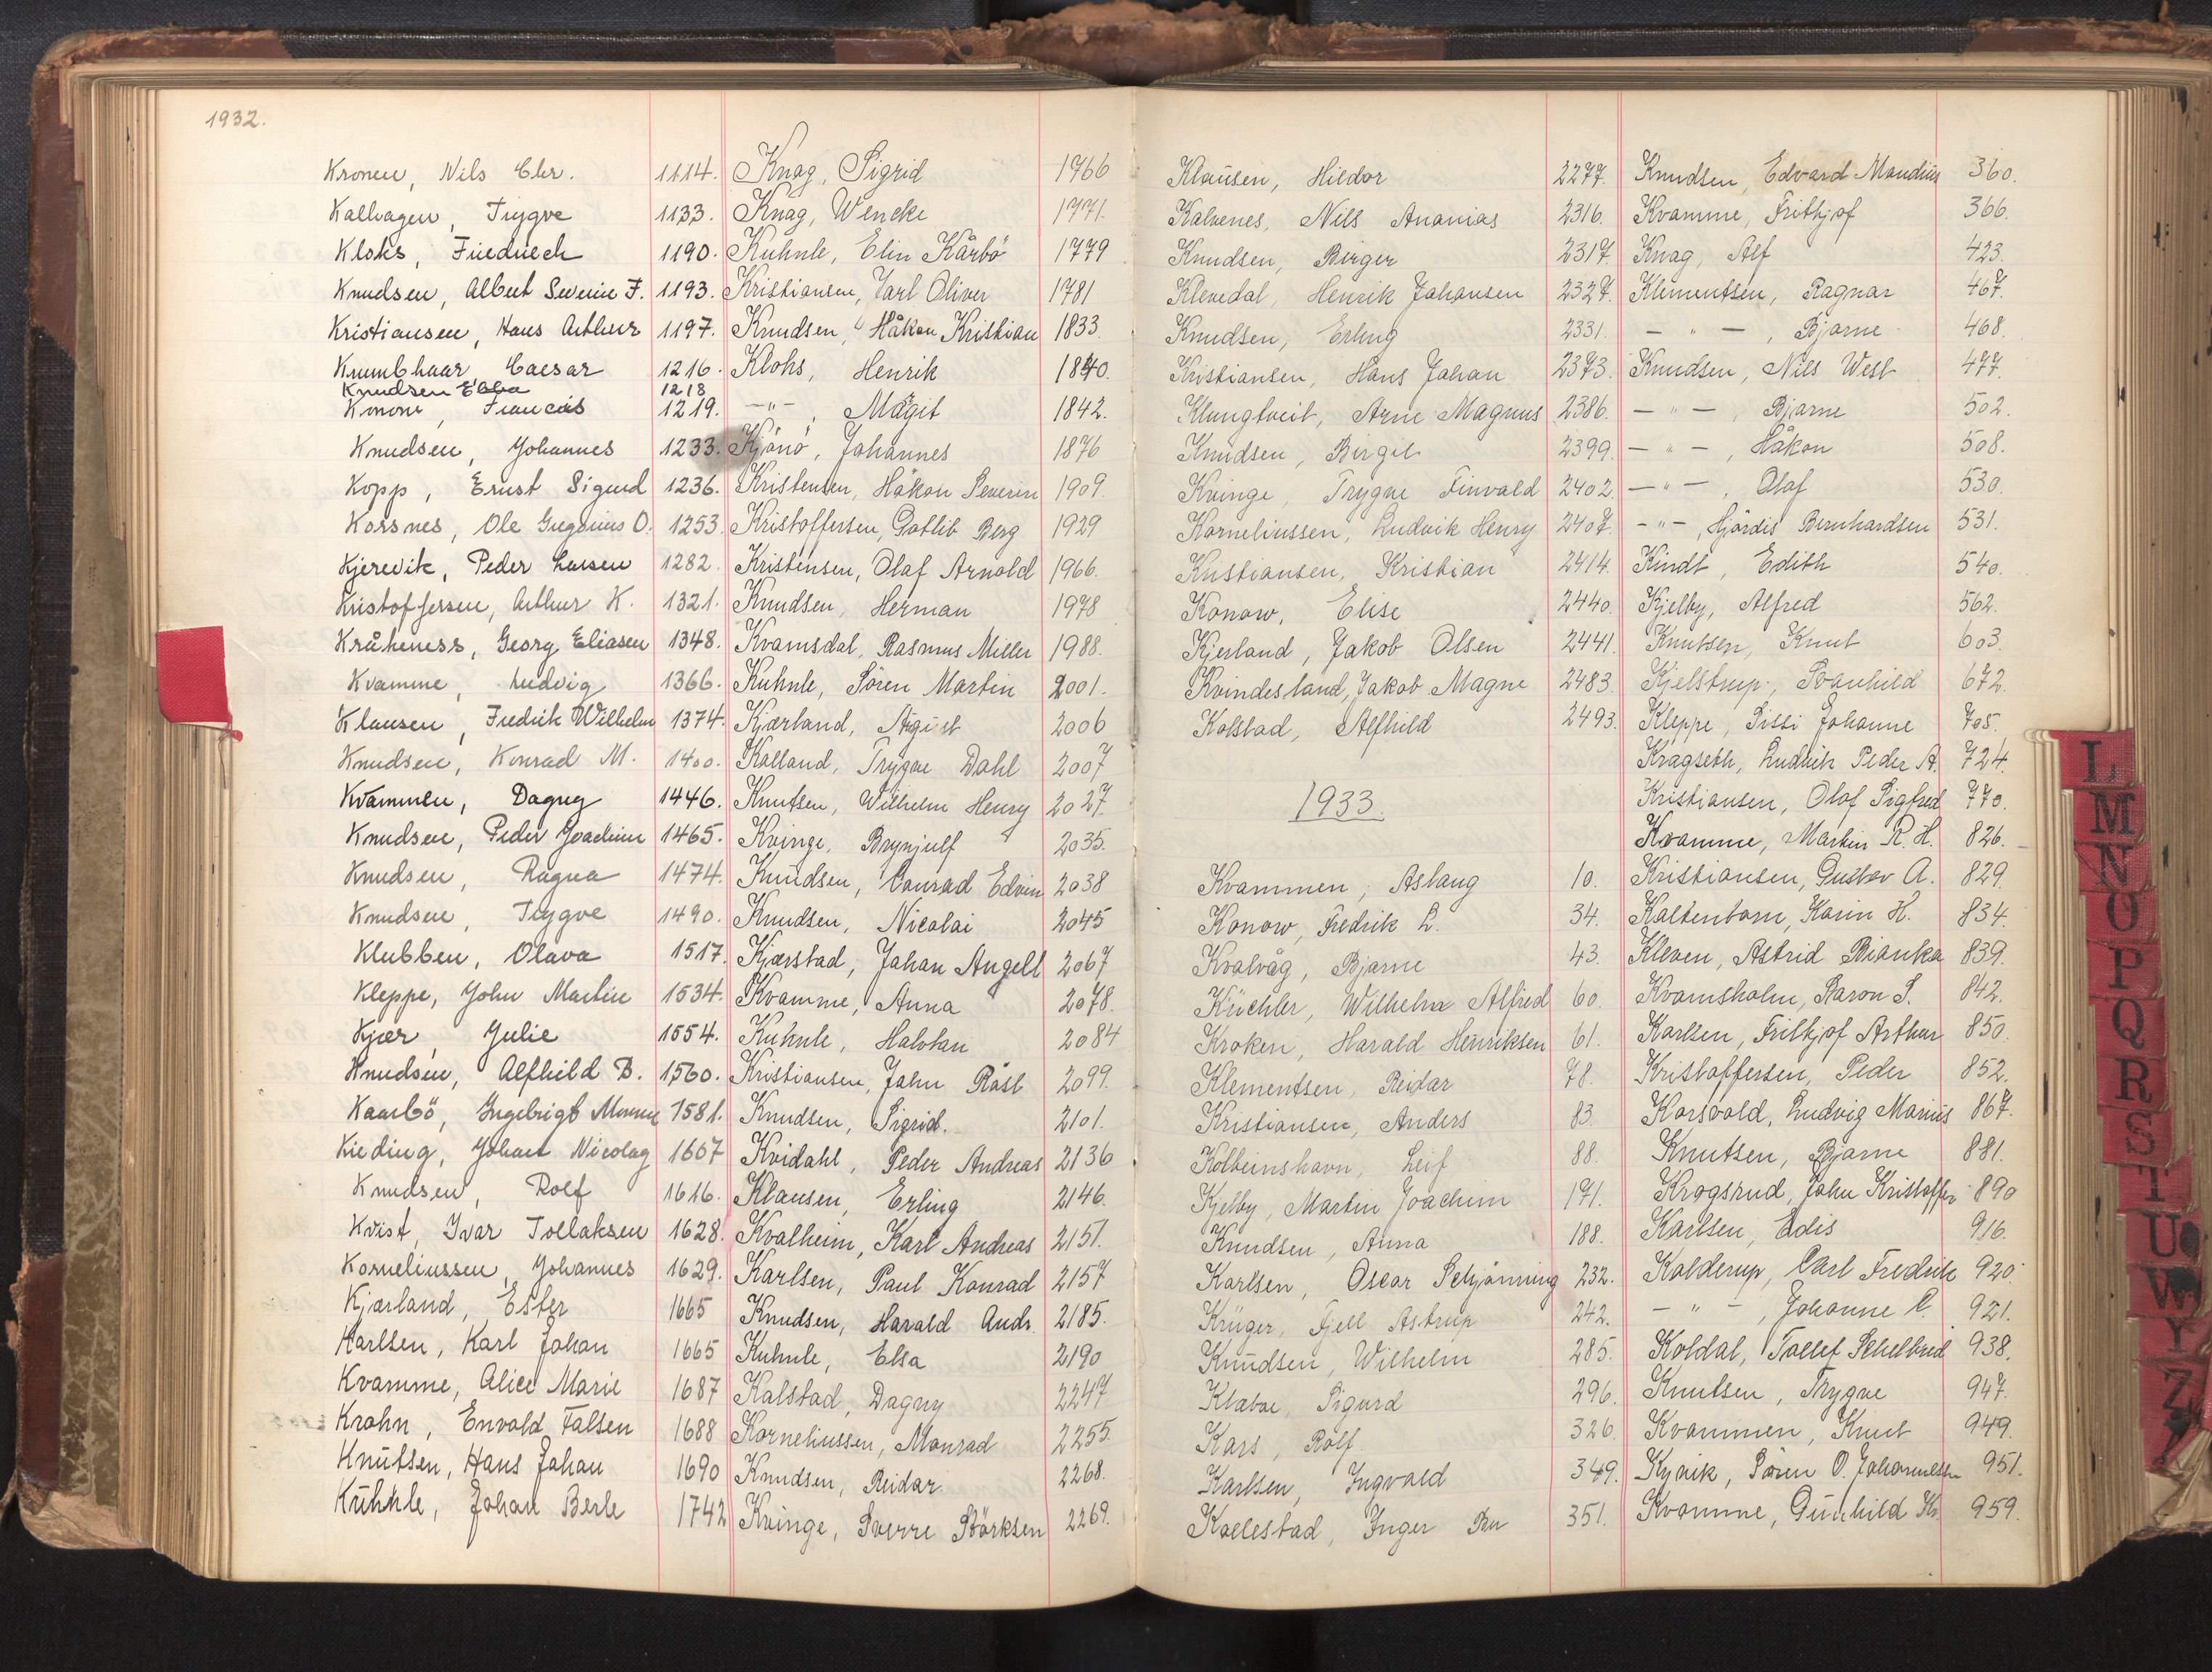 1932.
Kronen, Nils Chr. 1114.
Kalhagen, Trygve 1133.
Kloks, Friedrich 1190.
Knudsen, Albert Severin F. 1193.
Kristiansen, Hans Arthur 1197.
Krumbhaar, Caesar 1216.
Knudsen Ebba 1218
Konow, Francis 1219.
Knudsen, Johannes 1233.
Kopp, Ernst Sigurd 1236.
Korsnes, Ole Gregorius O. 1253
Kjerevik, Peder Larsen 1282.
Kristoffersen, Arthur K. 1321.
Kråkeness, Georg Eliasen 1348.
Kvamme, Ludvig 1366.
Klausen, Fredrik Wilhelm 1374.
Knudsen, Konrad M. 1400.
Kvammen, Dagny 1446.
Knudsen, Peder Joachim 1465.
Knudsen, Ragna 1474.
Knudsen, Trygve 1490.
Klubben, Olava 1517.
Kleppe, John Martin 1534.
Kjær, Julie 1554.
Knudsen, Alfhild B. 1560.
Kaarbö, Ingebrigt Monne 1581.
Kieding, Johan Nicolay 1607
Knudsen, Rolf 1616.
Kvist, Ivar Tollaksen 1628.
Korneliussen, Johannes 1629.
Kjærland, Ester 1665
Karlsen, Karl Johan 1665
Kvamme, Alice Marie 1687
Krohn, Envold Falsen 1688
Knutsen, Hans Johan 1690
Kühnle, Johan Berle 1742
Knag, Sigrid 1766
Knag, Wencke 1771.
Kuhnle, Elin Kårbö 1779
Kristiansen, Carl Oliver 1781
Knudsen, Håkon Kristian 1833.
Klohs, Henrik 1840.
-"-, Magit 1842.
Kjönö, Johannes 1876
Kristensen, Håkon Severin 1909.
Kristoffersen, Gotlib Berg 1929
Kristensen, Olaf Arnold 1966.
Knudsen, Herman 1978
Kvamsdal, Rasmus Miller 1988.
Kuhnle, Sören Martin 2001.
Kjærland, August 2006
Kalland, Trygve Dahl 2007
Knutsen, Wilhelm Henry 2027
Kvinge, Brynjulf 2035.
Knudsen, Conrad Edvin 2038
Knudsen, Nicolai 2045
Kjærstad, Johan Angell 2067
Kvamme, Anna 2078.
Kuhnle, Halvtan 2084
Kristiansen, John Råsl 2099.
Knudsen, Sigrid. 2101.
Kvidahl, Peder Andreas 2136
Klausen, Erling 2146.
Kvalheim, Karl Andreas 2151.
Karlsen, Paul Konrad 2157
Knudsen, Harald Andr. 2185.
Kuhnle, Elsa 2190
Kalstad, Dagny 2247
Korneliussen, Monrad 2255.
Knudsen, Reidar 2268.
Kvinge, Sverre Störksen 2269.
Klausen, Hildor 2277.
Kalvenes, Nils Ananias 2316.
Knudsen, Birger 2317.
Klevedal, Henrik Johansen 2327.
Knudsen, Erling 2331.
Kristiansen, Hans Johan 2373.
Klungtveit, Arne Magnus 2386.
Knudsen, Birgit 2399.
Kvinge, Trygve Finvald 2402.
Korneliussen, Ludvik Henry 2407.
Kristiansen, Kristian 2414.
Konow, Elise 2440.
Kjerland, Jakob Olsen 2441.
Kvindesland, Jakob Magne 2483.
Kolstad, Alfhild 2493.
1933.
Kvammen, Aslaug 10.
Konow, Fredrik L. 34.
Kvalvåg, Bjarne 43.
Küchler, Wilhelm Alfred 60.
Kroken, Harald Henriksen 61.
Klementsen, Reidar 78.
Kristiansen, Anders 83.
Kolbeinshavn, Leif 88.
Kjelby, Martin Joachim 171.
Knudsen, Anna 188.
Karlsen, Oscar Schjönning 232.
Krüger, Fjell Astrup 242.
Knudsen, Wilhelm 285.
Klæboe, Sigurd 296.
Kars, Rolf 326.
Karlsen, Ingvald 349.
Kollestad, Inger 351.
Knudsen, Edvard Mandius 360.
Kvamme, Frithjof 366.
Knag, Alf 423.
Klementsen, Ragnar 467.
- " -, Bjarne 468.
Knudsen, Nils West 477.
- " -, Bjarne 502.
- " -, Håkon 508.
- " -, Olaf 530.
- " -, Hjördis Bernhardsen 531.
Kindt, Edith 540.
Kjelby, Alfred 562.
Knutsen, Knut 603.
Kjelstrup, Svanhild 672.
Kleppe, Sissi Johanne 705.
Kragseth, Ludvik Peder A. 724.
Kristiansen, Olaf Sigfred 770.
Kvamme, Martin R. H. 826.
Kristiansen, Gustav A. 829.
Kaltenborn, Karin H. 834.
Kleven, Astrid Bianka 839.
Kvamsholm, Aaron S. 842.
Karlsen, Frithjof Arthur 850.
Kristoffersen, Peder 852.
Korsvold, Ludvig Marius 867.
Knutsen, Bjarne 881.
Krogsrud, John Kristoffer 890
Karlsen, Edis 916.
Kolderup, Carl Fredrik 920.
- " -, Johanne C. 921.
Koldal, Tollef 938.
Knutsen, Trygve 947.
Kvammen, Knut 949.
Kyvik, Sören O. Johannessen 951.
Kvamme, Gunhild 959.
L
M
N
O
P
Q
R
S
T
U
W
Y
Z